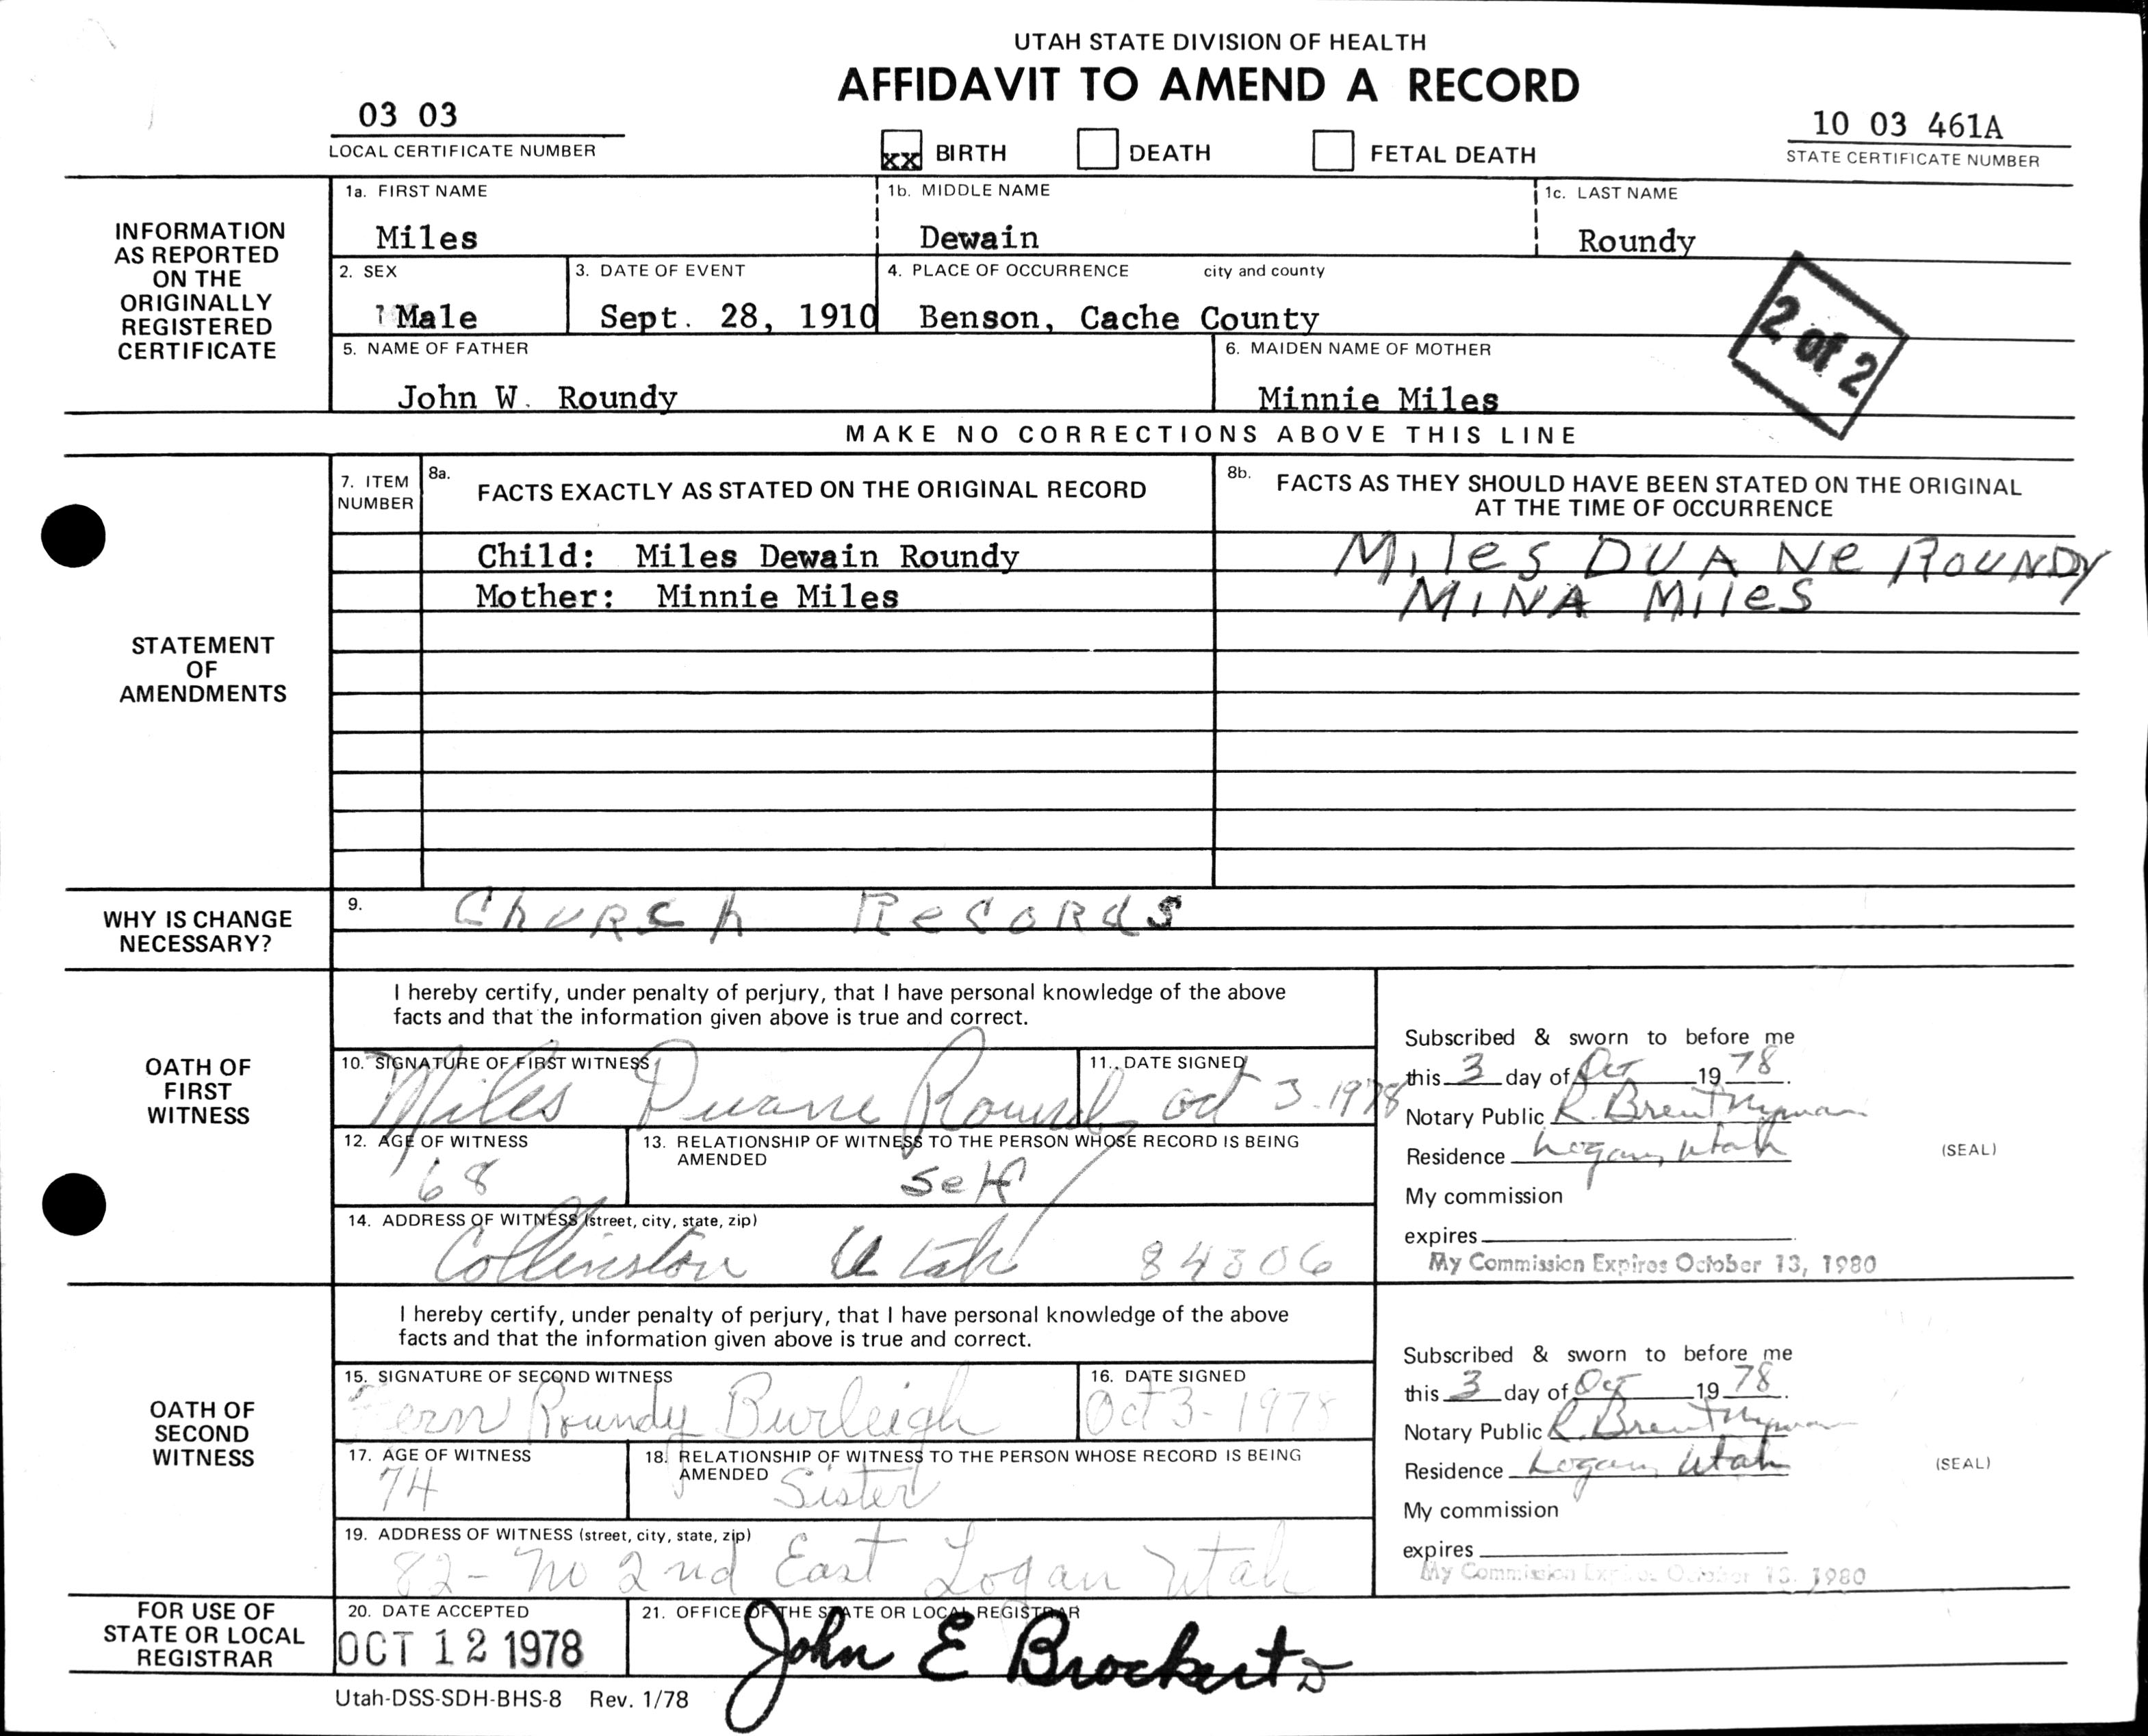 UTAH STATE DIVISION OF HEALTH
AFFIDAVIT TO AMEND A RECORD
03 03
LOCAL CERTIFICATE NUMBER
xx BIRTH DEATH FETAL DEATH
10 03 461A
STATE CERTIFICATE NUMBER
INFORMATION
AS REPORTED
ON THE
ORIGINALLY
REGISTERED
CERTIFICATE
1a. FIRST NAME 1b. MIDDLE NAME 1c. LAST NAME
Miles Dewain Roundy
2. SEX 3. DATE OF EVENT 4. PLACE OF OCCURRENCE city and county
Male Sept. 28, 1910 Benson, Cache County
2 of 2
5. NAME OF FATHER 6. MAIDEN NAME OF MOTHER
John W. Roundy Minnie Miles
MAKE NO CORRECTIONS ABOVE THIS LINE
STATEMENT
OF
AMENDMENTS
7. ITEM
NUMBER
8a. FACTS EXACTLY AS STATED ON THE ORIGINAL RECORD
8b. FACTS AS THEY SHOULD HAVE BEEN STATED ON THE ORIGINAL
AT THE TIME OF OCCURRENCE
Child: Miles Dewain Roundy Miles DUANe ROUNDY
Mother: Minnie Miles MINA Miles
WHY IS CHANGE
NECESSARY?
9. ChURCh ReCORdS
OATH OF
FIRST
WITNESS
I hereby certify, under penalty of perjury, that I have personal knowledge of the above
facts and that the information given above is true and correct.
10. SIGNATURE OF FIRST WITNESS 11. DATE SIGNED
Miles Duane Roundy oct 3.1978
12. AGE OF WITNESS 13. RELATIONSHIP OF WITNESS TO THE PERSON WHOSE RECORD IS BEING
AMENDED
68 Self
14. ADDRESS OF WITNESS (street, city, state, zip)
Collinston Utah 84306
Subscribed & sworn to before me
this 3 day of Oct 1978.
Notary Public R. Brent Nyman
Residence Logan, Utah
(SEAL)
My commission
expires
My Commission Expires October 13, 1980
OATH OF
SECOND
WITNESS
I hereby certify, under penalty of perjury, that I have personal knowledge of the above
facts and that the information given above is true and correct.
15. SIGNATURE OF SECOND WITNESS 16. DATE SIGNED
Fern Roundy Burleigh Oct 3-1978
17. AGE OF WITNESS 18. RELATIONSHIP OF WITNESS TO THE PERSON WHOSE RECORD IS BEING
AMENDED
74 Sister
19. ADDRESS OF WITNESS (street, city, state, zip)
82- No 2nd East Logan Utah
Subscribed & sworn to before me
this 3 day of Oct 1978.
Notary Public R. Brent Nyman
Residence Logan, Utah
(SEAL)
My commission
expires
My Commission Expires October 13, 1980
FOR USE OF
STATE OR LOCAL
REGISTRAR
20. DATE ACCEPTED 21. OFFICE OF THE STATE OR LOCAL REGISTRAR
OCT 12 1978 John E Brockert
Utah-DSS-SDH-BHS-8 Rev. 1/78